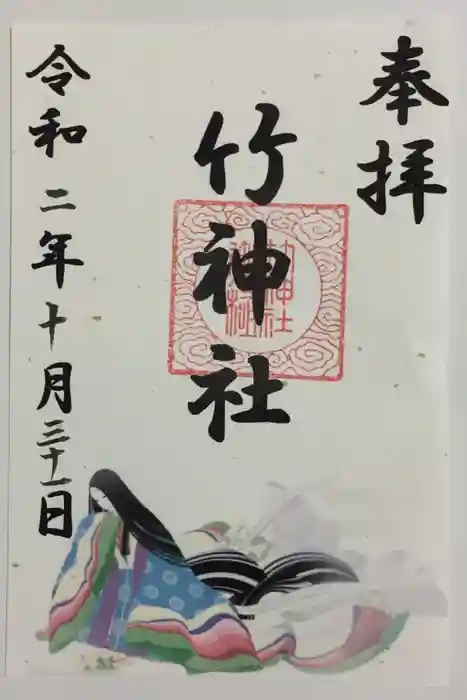 奉拝
竹神社
令和二年十月三十一日